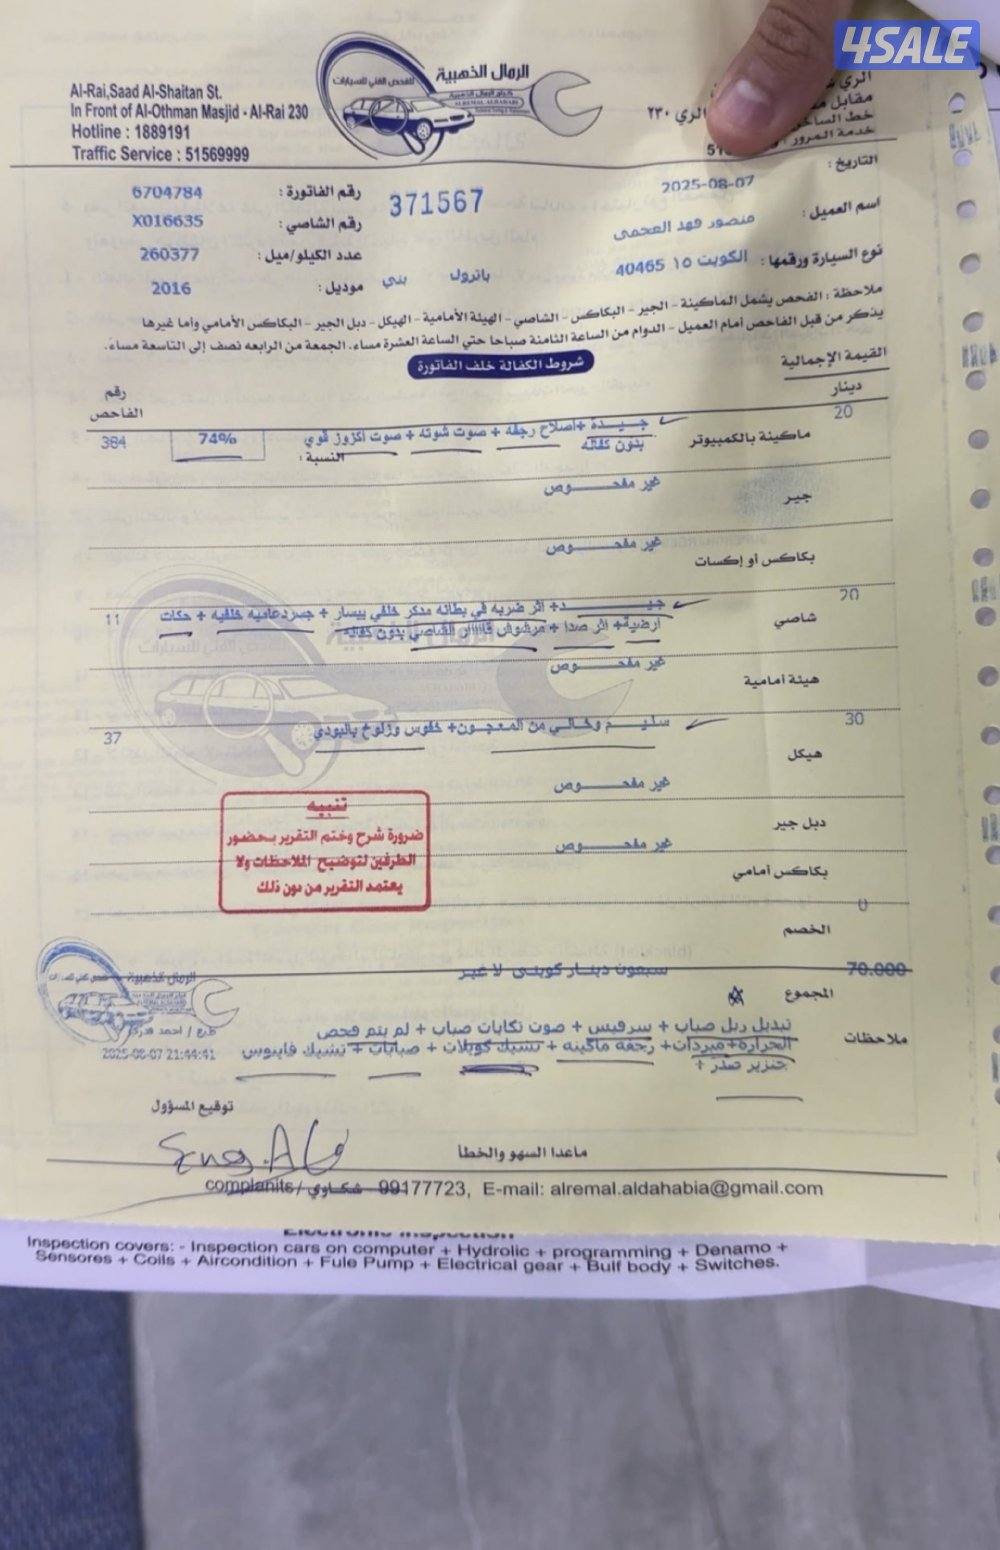 4SALE
Al-Rai,Saad Al-Shaitan St.
In Front of Al-Othman Masjid - Al-Rai 230
Hotline : 1889191
Traffic Service : 51569999
الرمال الذهبية
للفحص الفني للسيارات
كراج الرمال الذهبية
ALREMAL ALDAHABI
الري
مقابل
الري ٢٣٠
خط الساخن
خدمة المرور
التاريخ :
2025-08-07
رقم الفاتورة :
6704784
371567
اسم العميل :
منصور فهد العجمي
رقم الشاصي :
X016635
نوع السيارة ورقمها :
الكويت ١٥ 40465
باترول
بني
عدد الكيلو/ميل :
260377
موديل :
2016
ملاحظة : الفحص يشمل الماكينة - الجير - البكاكس - الشاصي - الهيئة الأمامية - الهيكل - دبل الجير - البكاكس الأمامي وأما غيرها
يذكر من قبل الفاحص أمام العميل - الدوام من الساعة الثامنة صباحا حتي الساعة العشرة مساء. الجمعة من الرابعه نصف إلى التاسعة مساء.
شروط الكفالة خلف الفاتورة
القيمة الإجمالية
دينار
رقم
الفاحص
20
ماكينة بالكمبيوتر
جيـــدة +اصلاح رجفه + صوت شوته + صوت اكزوز قوي
بدون كفاله
النسبة :
74%
384
جير
غير مفحـــــوص
بكاكس أو إكسات
غير مفحـــــوص
20
شاصي
جيـــــــد+ اثر ضربه في بطانه مدكر خلفي ييسار + جسردعاميه خلفيه + حكات
ارضية+ اثر صدا + مرشوش قااااار الشاصي بدون كفالة
11
هيئة أمامية
غير مفحـــــوص
30
هيكل
سليـــم وخـالـي من المعجـــون+ خفوس وزلوخ بالبودي
37
دبل جير
غير مفحـــــوص
بكاكس أمامي
غير مفحـــــوص
تنبيه
ضرورة شرح وختم التقرير بحضور
الطرفين لتوضيح الملاحظات ولا
يعتمد التقرير من دون ذلك
الخصم
0
المجموع
70.000
سبعون دينار كويتى لا غير
ملاحظات
تبديل ربل صباب + سرفيس + صوت تكايات صباب + لم يتم فحص
الحرارة+مبردات+ رجفه ماكينه + تشيك كويلات + صبابات + تشيك فايبوس
جنزير صدر +
الرمال الذهبية
2025-08-07 21:44:41
توقيع المسؤول
ماعدا السهو والخطأ
complanits/ شكاوي 99177723, E-mail: alremal.aldahabia@gmail.com
Electronic Inspection
Inspection covers: - Inspection cars on computer + Hydrolic + programming + Denamo +
Sensores + Coils + Aircondition + Fule Pump + Electrical gear + Bulf body + Switches.